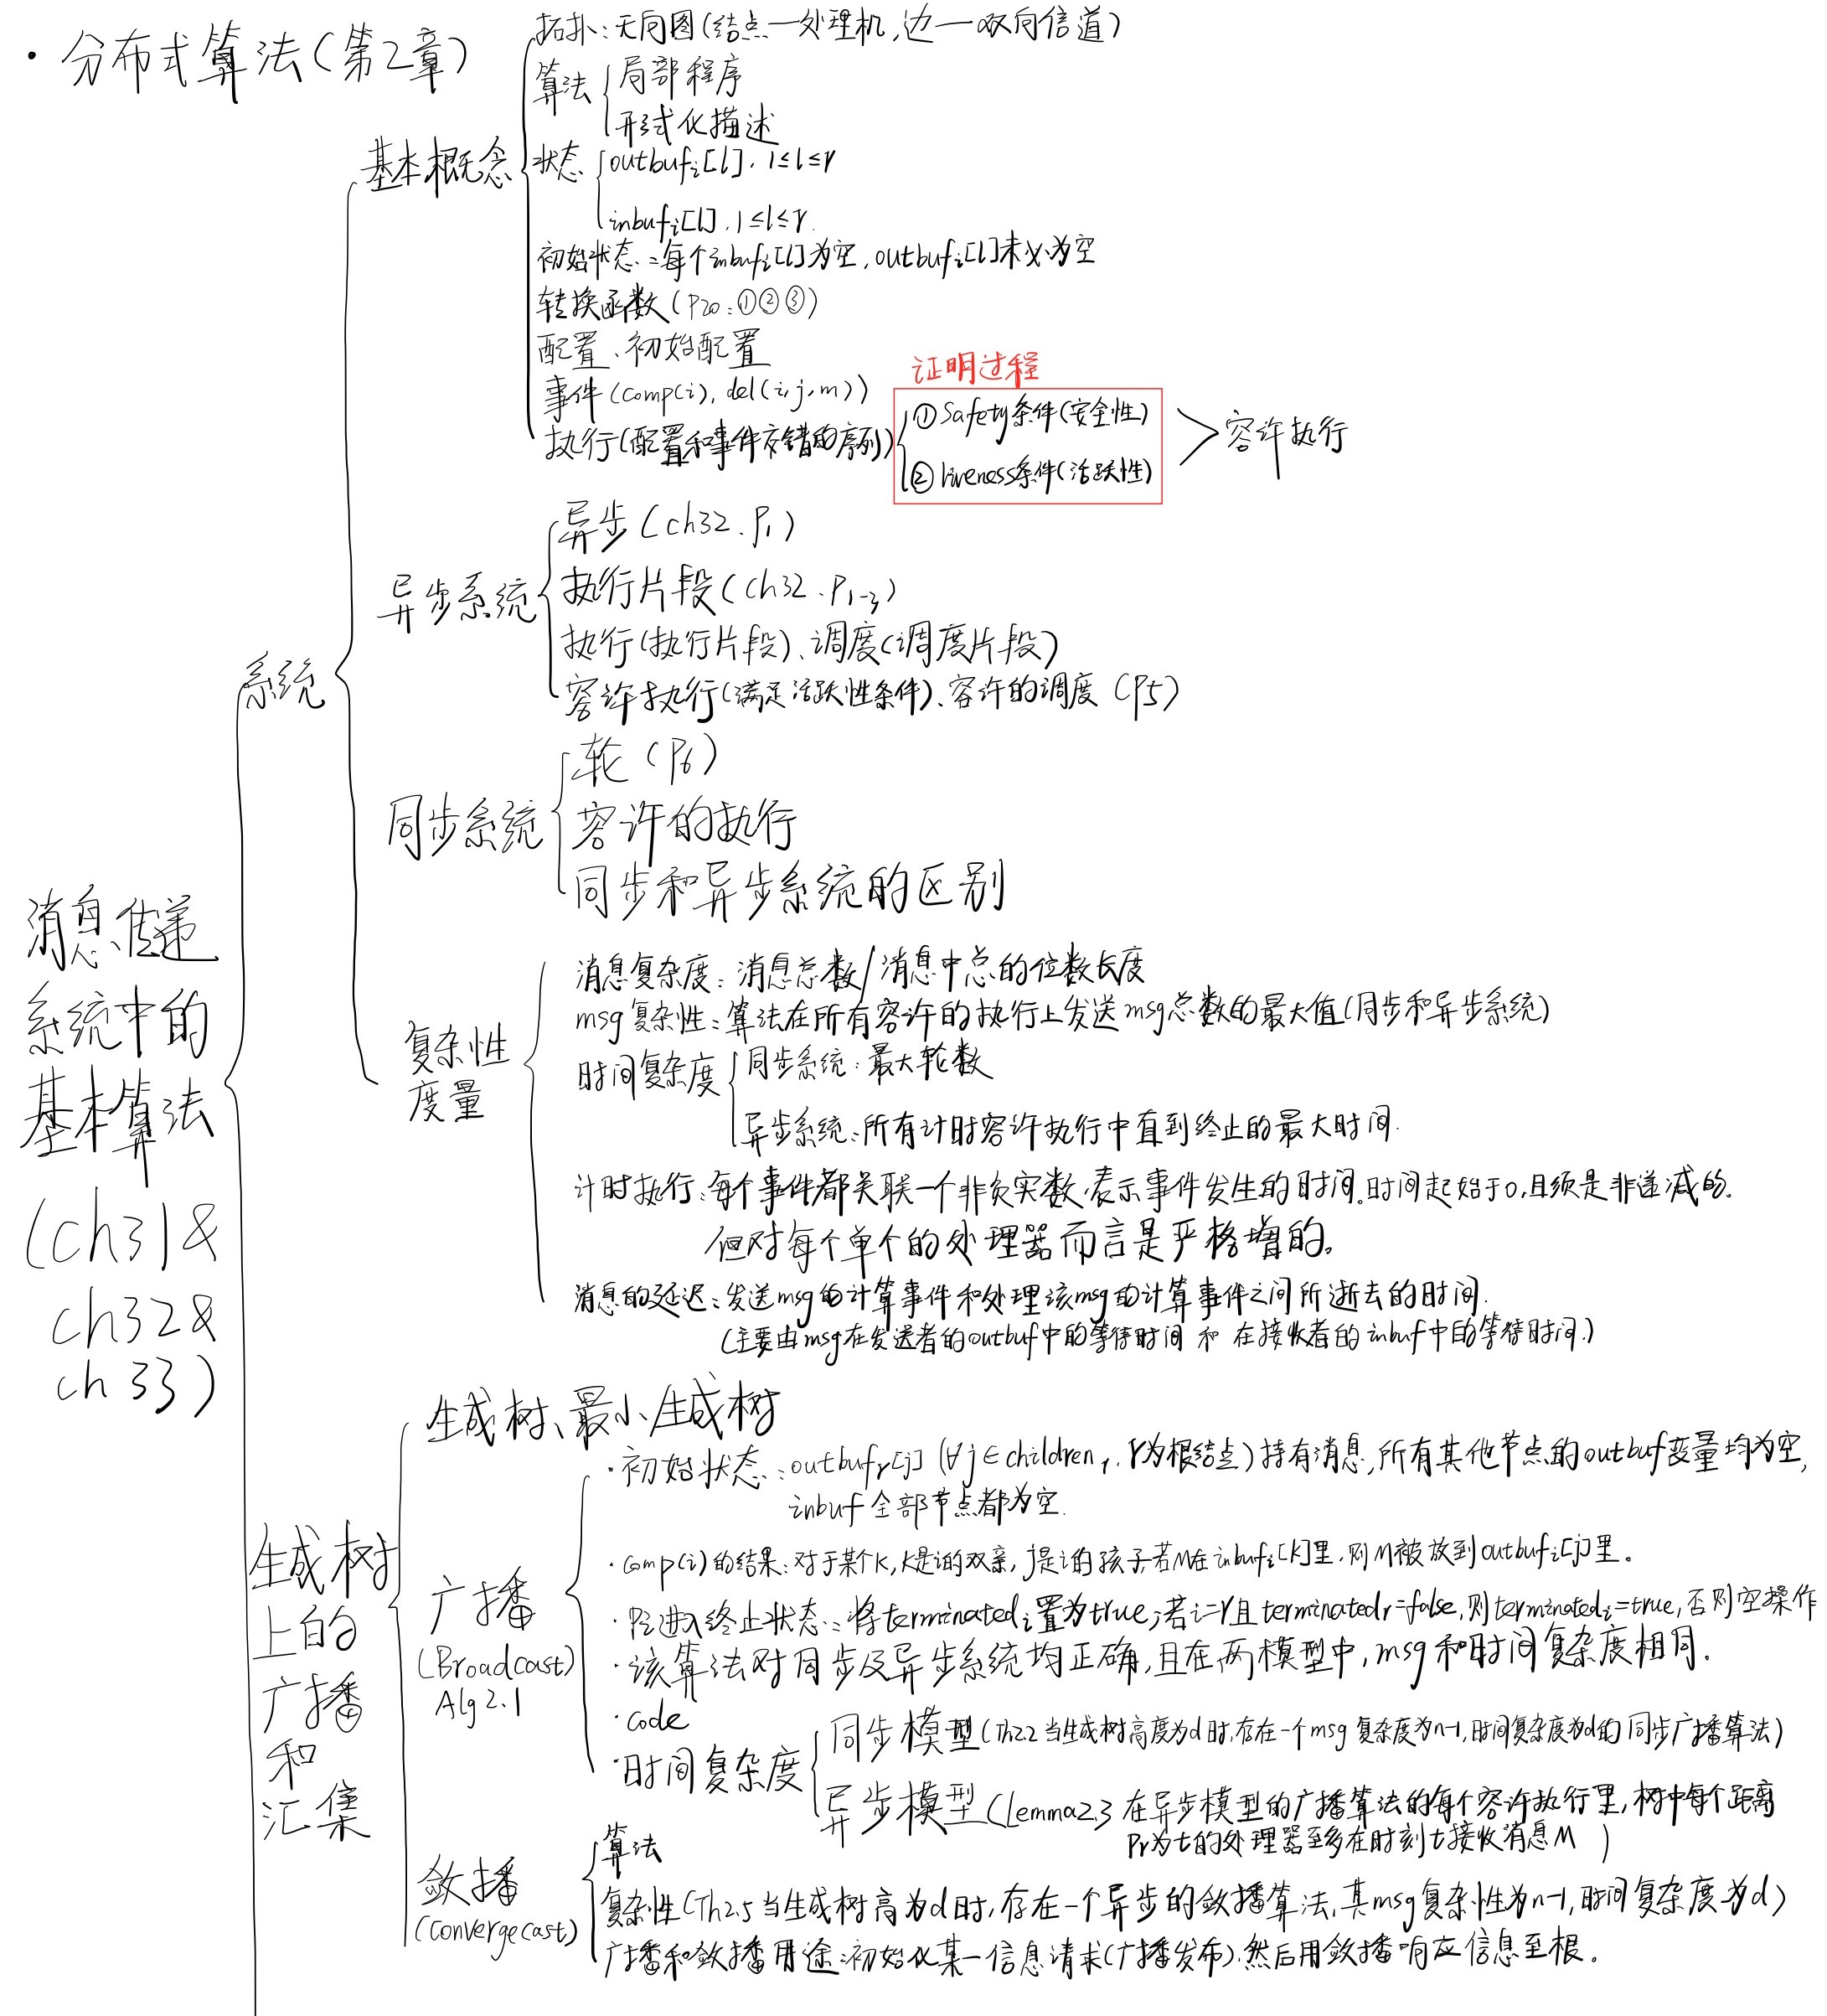 · 分布式算法(第2章)
消息传递
系统中的
基本算法
(ch31&
ch32&
ch33)
系统
基本概念
拓扑:无向图(结点—处理机,边—双向信道)
算法
局部程序
形式化描述
状态
outbufᵢ[l], 1≤l≤r
inbufᵢ[l], 1≤l≤r.
初始状态:每个inbufᵢ[l]为空,outbufᵢ[l]未必为空
转换函数(P20:①②③)
配置、初始配置
事件(comp(i), del(i,j,m))
执行(配置和事件交错的序列)
证明过程
①Safety条件(安全性)
②liveness条件(活跃性)
容许执行
异步系统
异步(ch32.P1)
执行片段(ch32.P1-3)
执行(执行片段)、调度(调度片段)
容许执行(满足活跃性条件)、容许的调度(P5)
同步系统
轮(P6)
容许的执行
同步和异步系统的区别
复杂性
度量
消息复杂度:消息总数/消息中总的位数长度
msg复杂性:算法在所有容许的执行上发送msg总数的最大值(同步和异步系统)
时间复杂度
同步系统:最大轮数
异步系统:所有计时容许执行中直到终止的最大时间.
计时执行:每个事件都关联一个非负实数,表示事件发生的时间。时间起始于0,且须是非递减的.
但对每个单个的处理器而言是严格增的。
消息的延迟:发送msg的计算事件和处理该msg的计算事件之间所逝去的时间.
(主要由msg在发送者的outbuf中的等待时间 和 在接收者的inbuf中的等待时间.)
生成树
上的
广播
和
汇集
生成树、最小生成树
广播
(Broadcast)
Alg2.1
·初始状态:outbufᵣ[j] (∀j∈childrenᵣ, r为根结点)持有消息,所有其他节点的outbuf变量均为空,
inbuf全部节点都为空.
·comp(i)的结果:对于某个K,K是i的双亲,j是i的孩子,若M在inbufᵢ[K]里,则M被放到outbufᵢ[j]里。
·Pi进入终止状态:将terminatedᵢ置为true;若i=r且terminatedᵣ=false,则terminatedᵢ=true,否则空操作
·该算法对同步及异步系统均正确,且在两模型中,msg和时间复杂度相同.
·code
·时间复杂度
同步模型(Th2.2 当生成树高度为d时,存在一个msg复杂度为n-1,时间复杂度为d的同步广播算法)
异步模型(lemma2.3 在异步模型的广播算法的每个容许执行里,树中每个距离
Pr为t的处理器至多在时刻t接收消息M )
敛播
(convergecast)
算法
复杂性(Th2.5 当生成树高为d时,存在一个异步的敛播算法,其msg复杂性为n-1,时间复杂度为d)
广播和敛播用途:初始化某一信息请求(广播发布),然后用敛播响应信息至根。